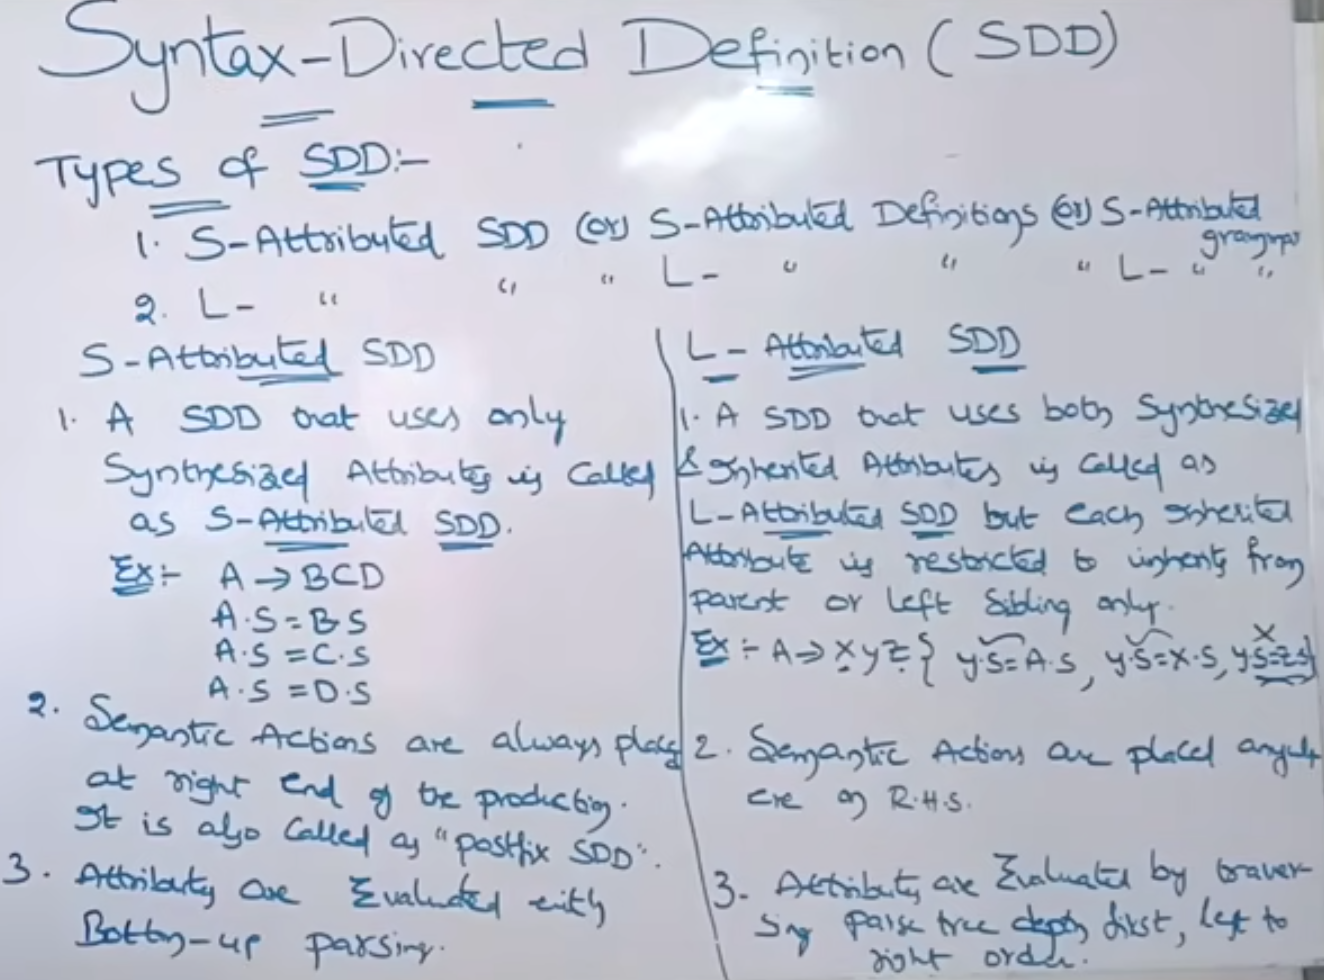 Syntax-Directed Definition (SDD)
Types of SDD:-
1. S-Attributed SDD (or) S-Attributed Definitions (or) S-Attributed
grammar
2. L- " " " L- " " " L- " "
S-Attributed SDD
1. A SDD that uses only
Synthesized Attributes is Called
as S-Attributed SDD.
Ex:- A → BCD
A.S = B S
A.S = C.S
A.S = D.S
2. Semantic Actions are always placed
at right end of the production.
It is also Called as "postfix SDD".
3. Attributes are Evaluated with
Bottom-up parsing.
L- Attributed SDD
1. A SDD that uses both Synthesized
& Inherited Attributes is called as
L-Attributed SDD but each inherited
Attribute is restricted to inherits from
parent or left sibling only.
Ex :- A → X Y Z { Y.S = A.S, Y.S = X.S, Y.S = Z.S }
2. Semantic Actions are placed anywh
ere on R.H.S.
3. Attributes are Evaluated by traver-
sing parse tree depth first, left to
right order.